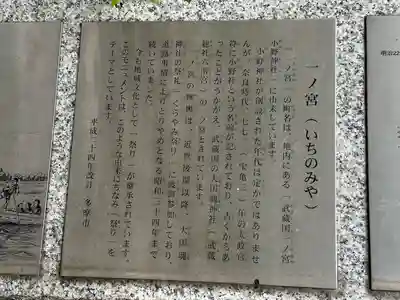 一ノ宮（いちのみや）
「一ノ宮」の町名は、地内にある「武蔵国一ノ宮
小野神社」に由来しています。
小野神社が創設された年代は定かではありませ
んが、奈良時代、七七一（宝亀二）年の太政官
符に小野社という名前が記されており、古くからあ
ったことがうかがえ、武蔵国の大国魂神社（武蔵
総社六所宮）の一ノ宮とされています。
一ノ宮の神輿は、近世後期以降、大国魂
神社の祭礼「くらやみ祭り」に渡御参加しており、
道路事情によりとりやめとなる昭和三十四年まで
続いていました。
今も地域文化として「祭り」が継承されています。
このモニュメントは、このような由来にちなみ「祭り」を
テーマとしています。
平成二十四年改訂 多摩市
明治22